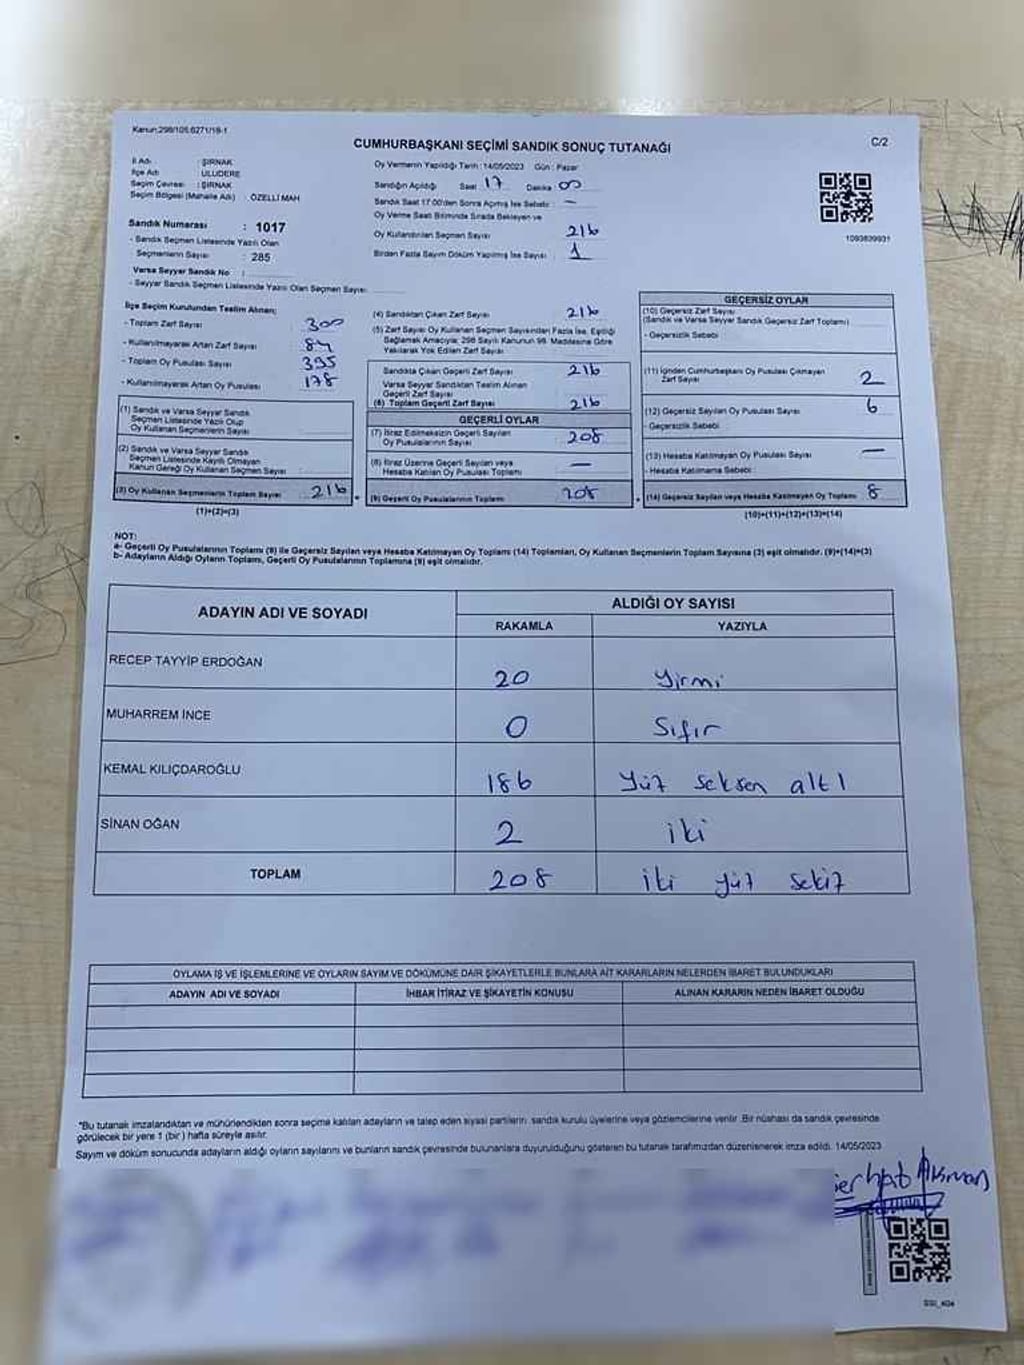 Kanun:298/105.6271/19-1
C/2
CUMHURBAŞKANI SEÇİMİ SANDIK SONUÇ TUTANAĞI
İl Adı : ŞIRNAK
İlçe Adı : ULUDERE
Seçim Çevresi : ŞIRNAK
Seçim Bölgesi (Mahalle Adı) ÖZELLİ MAH
Sandık Numarası : 1017
- Sandık Seçmen Listesinde Yazılı Olan
Seçmenlerin Sayısı : 285
Varsa Seyyar Sandık No :
- Seyyar Sandık Seçmen Listesinde Yazılı Olan Seçmen Sayısı
Oy Vermenin Yapıldığı Tarih : 14/05/2023 Gün : Pazar
Sandığın Açıldığı Saat 17 Dakika 00
Sandık Saat 17:00'den Sonra Açılmış İse Sebebi : —
Oy Verme Saati Bitiminde Sırada Bekleyen ve
Oy Kullandırılan Seçmen Sayısı 216
Birden Fazla Sayım Döküm Yapılmış İse Sayısı : 1
1093839931
İlçe Seçim Kurulundan Teslim Alınan;
- Toplam Zarf Sayısı 300
- Kullanılmayarak Artan Zarf Sayısı 84
- Toplam Oy Pusulası Sayısı 395
- Kullanılmayarak Artan Oy Pusulası 178
(1) Sandık ve Varsa Seyyar Sandık
Seçmen Listesinde Yazılı Olup
Oy Kullanan Seçmenlerin Sayısı
(2) Sandık ve Varsa Seyyar Sandık
Seçmen Listesinde Kayıtlı Olmayan
Kanun Gereği Oy Kullanan Seçmen Sayısı :
(3) Oy Kullanan Seçmenlerin Toplam Sayısı 216
(1)+(2)=(3)
(4) Sandıktan Çıkan Zarf Sayısı 216
(5) Zarf Sayısı Oy Kullanan Seçmen Sayısından Fazla İse, Eşitliği
Sağlamak Amacıyla; 298 Sayılı Kanunun 98. Maddesine Göre
Yakılarak Yok Edilen Zarf Sayısı
Sandıkta Çıkan Geçerli Zarf Sayısı 216
Varsa Seyyar Sandıktan Teslim Alınan
Geçerli Zarf Sayısı
(6) Toplam Geçerli Zarf Sayısı 216
GEÇERLİ OYLAR
(7) İtiraz Edilmeksizin Geçerli Sayılan
Oy Pusulalarının Sayısı 208
(8) İtiraz Üzerine Geçerli Sayılan veya
Hesaba Katılan Oy Pusulası Toplamı —
(9) Geçerli Oy Pusulalarının Toplamı 208
GEÇERSİZ OYLAR
(10) Geçersiz Zarf Sayısı
(Sandık ve Varsa Seyyar Sandık Geçersiz Zarf Toplamı)
- Geçersizlik Sebebi
(11) İçinden Cumhurbaşkanı Oy Pusulası Çıkmayan
Zarf Sayısı 2
(12) Geçersiz Sayılan Oy Pusulası Sayısı 6
- Geçersizlik Sebebi
(13) Hesaba Katılmayan Oy Pusulası Sayısı —
- Hesaba Katılmama Sebebi
(14) Geçersiz Sayılan veya Hesaba Katılmayan Oy Toplamı 8
(10)+(11)+(12)+(13)=(14)
NOT:
a- Geçerli Oy Pusulalarının Toplamı (9) ile Geçersiz Sayılan veya Hesaba Katılmayan Oy Toplamı (14) Toplamları, Oy Kullanan Seçmenlerin Toplam Sayısına (3) eşit olmalıdır. (9)+(14)=(3)
b- Adayların Aldığı Oyların Toplamı, Geçerli Oy Pusulalarının Toplamına (9) eşit olmalıdır.
ADAYIN ADI VE SOYADI
ALDIĞI OY SAYISI
RAKAMLA YAZIYLA
RECEP TAYYİP ERDOĞAN 20 yirmi
MUHARREM İNCE 0 Sıfır
KEMAL KILIÇDAROĞLU 186 yüz seksen altı
SİNAN OĞAN 2 iki
TOPLAM 208 iki yüz sekiz
OYLAMA İŞ VE İŞLEMLERİNE VE OYLARIN SAYIM VE DÖKÜMÜNE DAİR ŞİKAYETLERLE BUNLARA AİT KARARLARIN NELERDEN İBARET BULUNDUKLARI
ADAYIN ADI VE SOYADI İHBAR İTİRAZ VE ŞİKAYETİN KONUSU ALINAN KARARIN NEDEN İBARET OLDUĞU
*Bu tutanak imzalandıktan ve mühürlendikten sonra seçime katılan adayların ve talep eden siyasi partilerin sandık kurulu üyelerine veya gözlemcilerine verilir. Bir nüshası da sandık çevresinde
görülecek bir yere 1 (bir) hafta süreyle asılır.
Sayım ve döküm sonucunda adayların aldığı oyların sayılarını ve bunların sandık çevresinde bulunanlara duyurulduğunu gösteren bu tutanak tarafımızdan düzenlenerek imza edildi. 14/05/2023